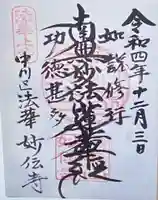 令和四年十二月三日
如説修行
南無妙法蓮華経
功徳甚多
中川区法華
妙伝寺